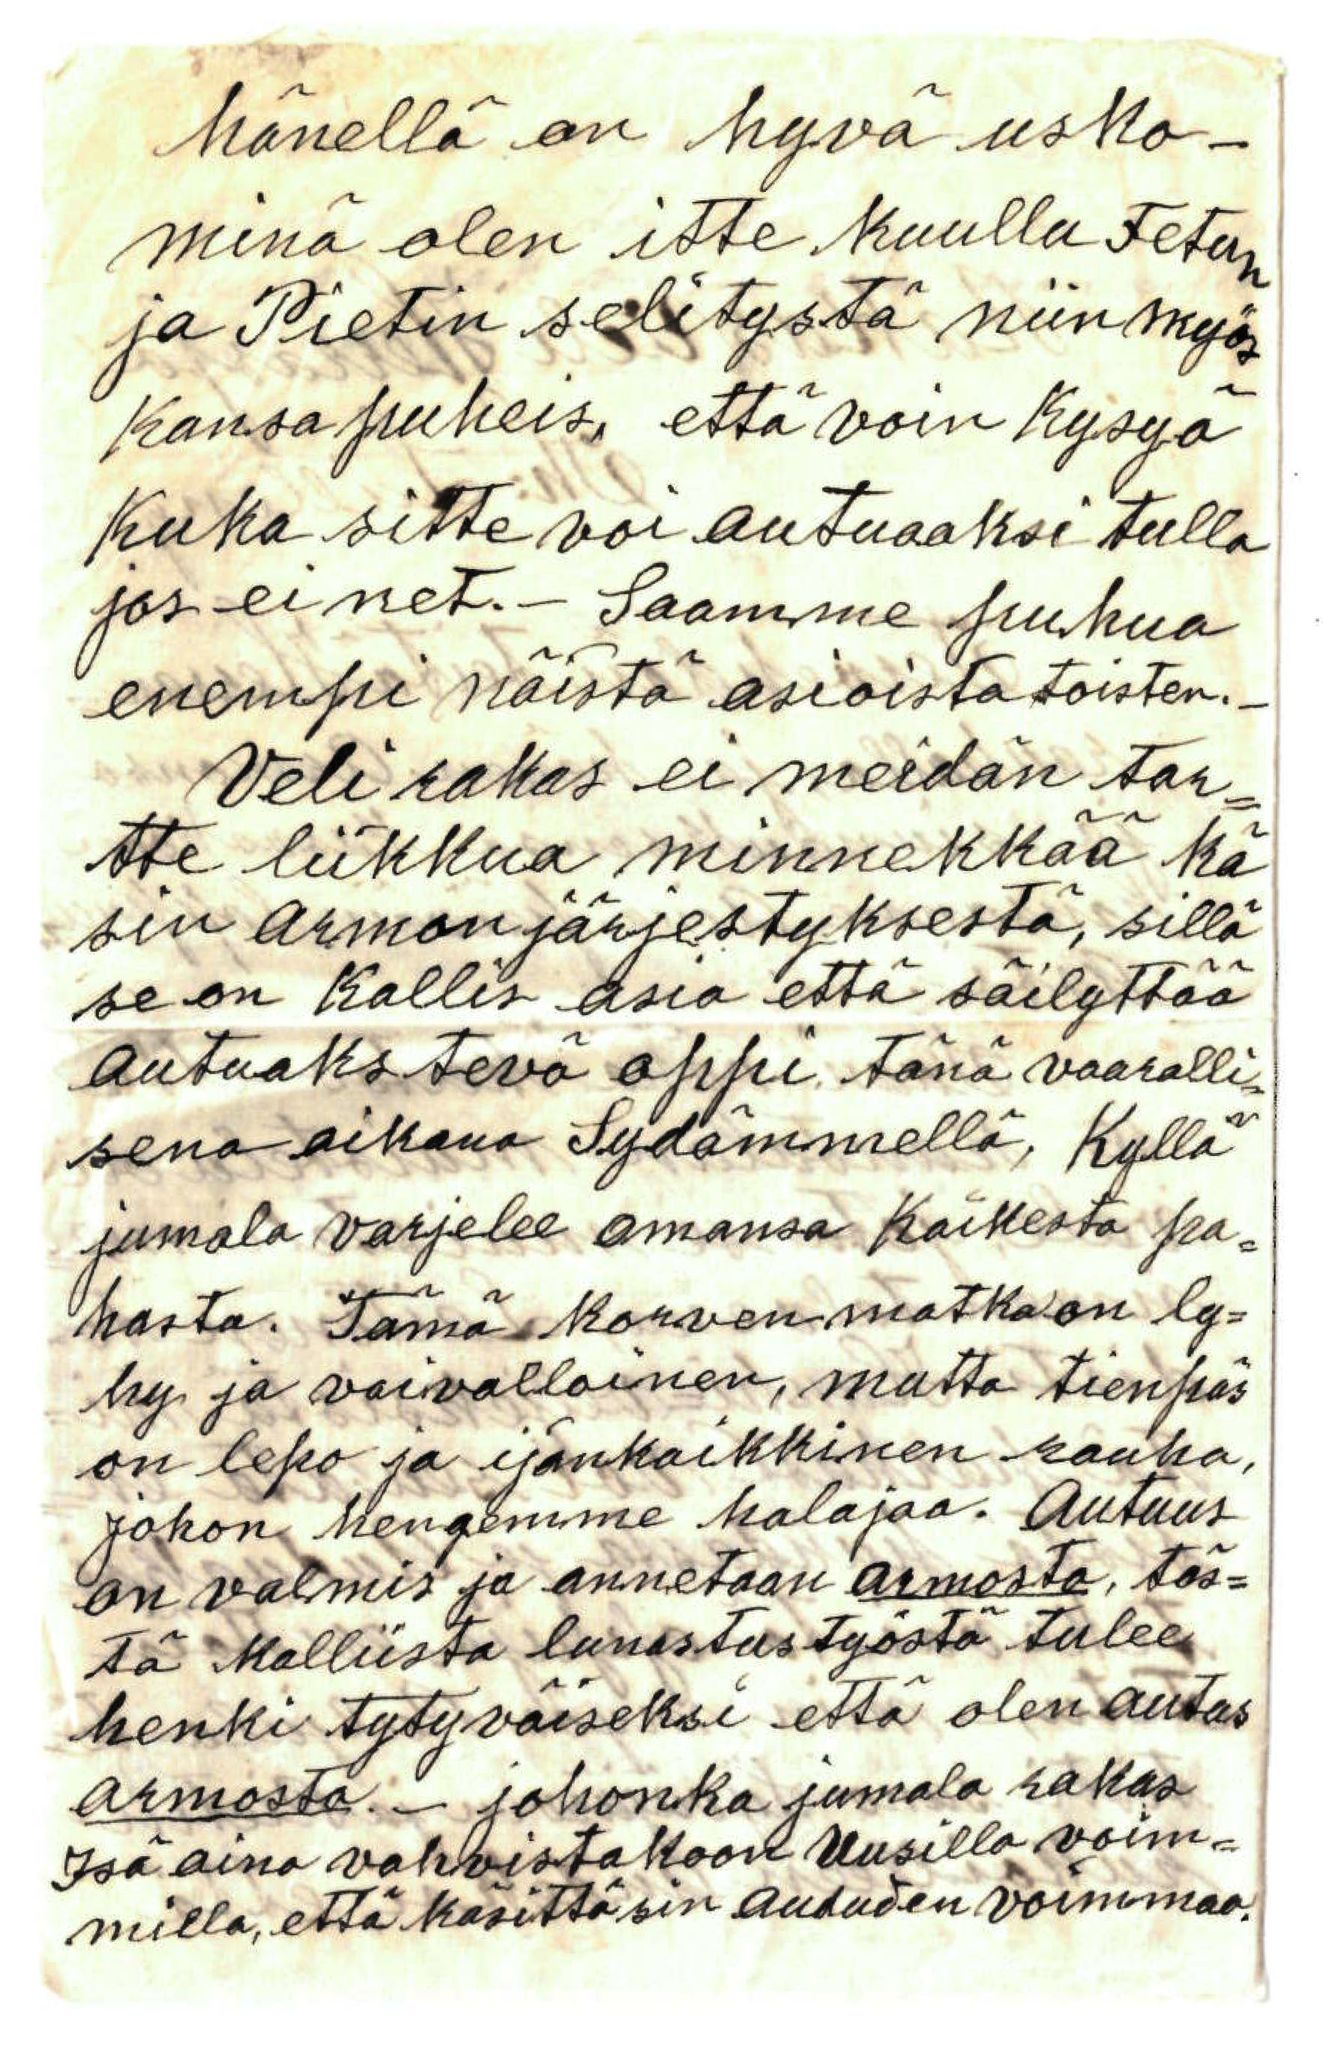 hänellä on hyvä usko –
minä olen itte kuullu Fetun
ja Pietin selitystä niin myös
kansapuheis, että voin kysyä
kuka sitte voi autuaaksi tulla
jos ei net. – Saamme puhua
enempi näistä asioista toisten. –
Veli rakas ei meidän tar=
tte liikkua minnekkää kä
sin armonjärjestyksestä, sillä
se on kallis asia että säilyttää
autuaks tevä oppi tänä vaaralli=
sena aikana Sydämmellä, Kyllä
jumala varjelee omansa kaikesta pa=
hasta. Tämä korvenmatka on ly=
hy ja vaivalloinen, mutta tienpäs
on lepo ja ijänkaikkinen rauha,
johon hengemme halajaa. Autuus
on valmis ja annetaan armosta, täs=
tä kalliista lunastustyöstä tulee
henki tytyväiseksi että olen autas
armosta. – johonka jumala rakas
Isä aina vahvistakoon Uusilla voim=
milla, että käsittäsin autuden voimmaa.